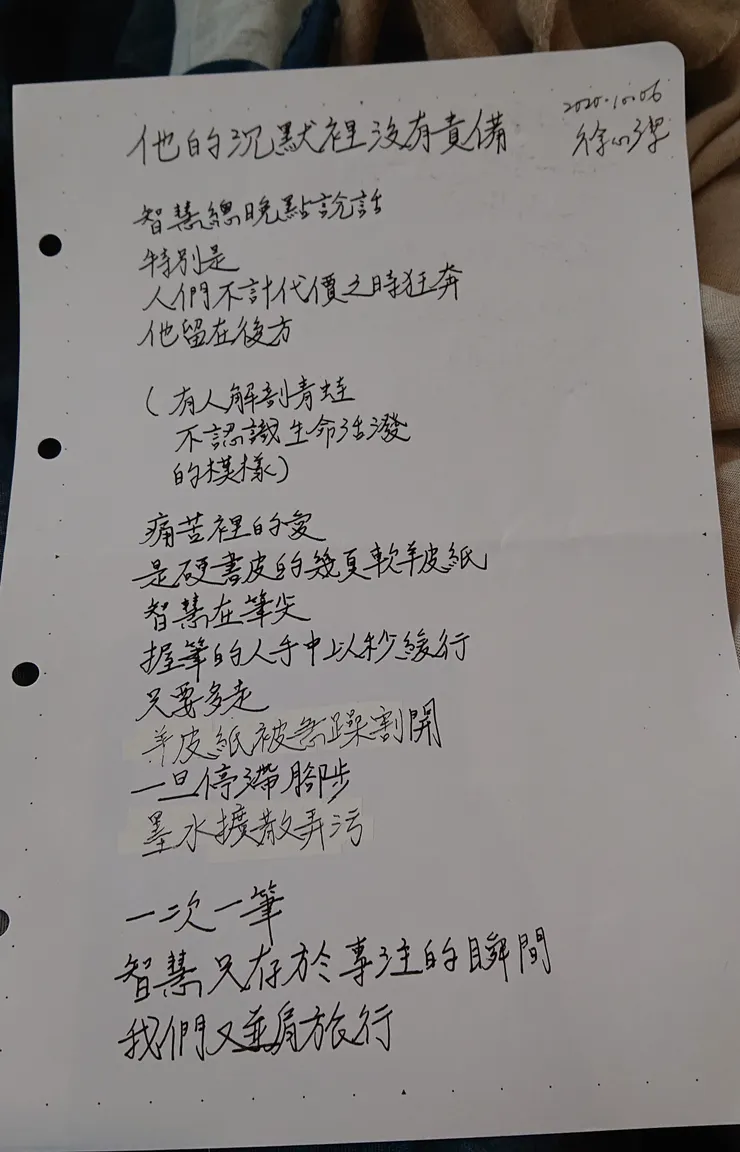 他的沉默裡沒有責備
2020.10.06
徐心潔
智慧總晚點說話
特別是
人們不計代價之時狂奔
他留在後方
(有人解剖青蛙
不認識生命活潑
的模樣)
痛苦裡的愛
是硬書皮的幾頁軟羊皮紙
智慧在筆尖
握筆的人手中以秒緩行
只要多走
羊皮紙被急躁割開
一旦停滯腳步
墨水擴散弄污
一次一筆
智慧只存於專注的瞬間
我們又並肩旅行